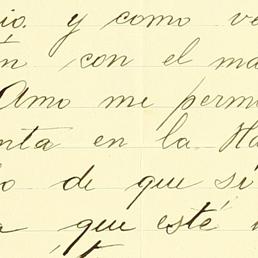 io. y como ve
ín con el ma
Amo me perm
nta en la Ha
o de que si
a que esté